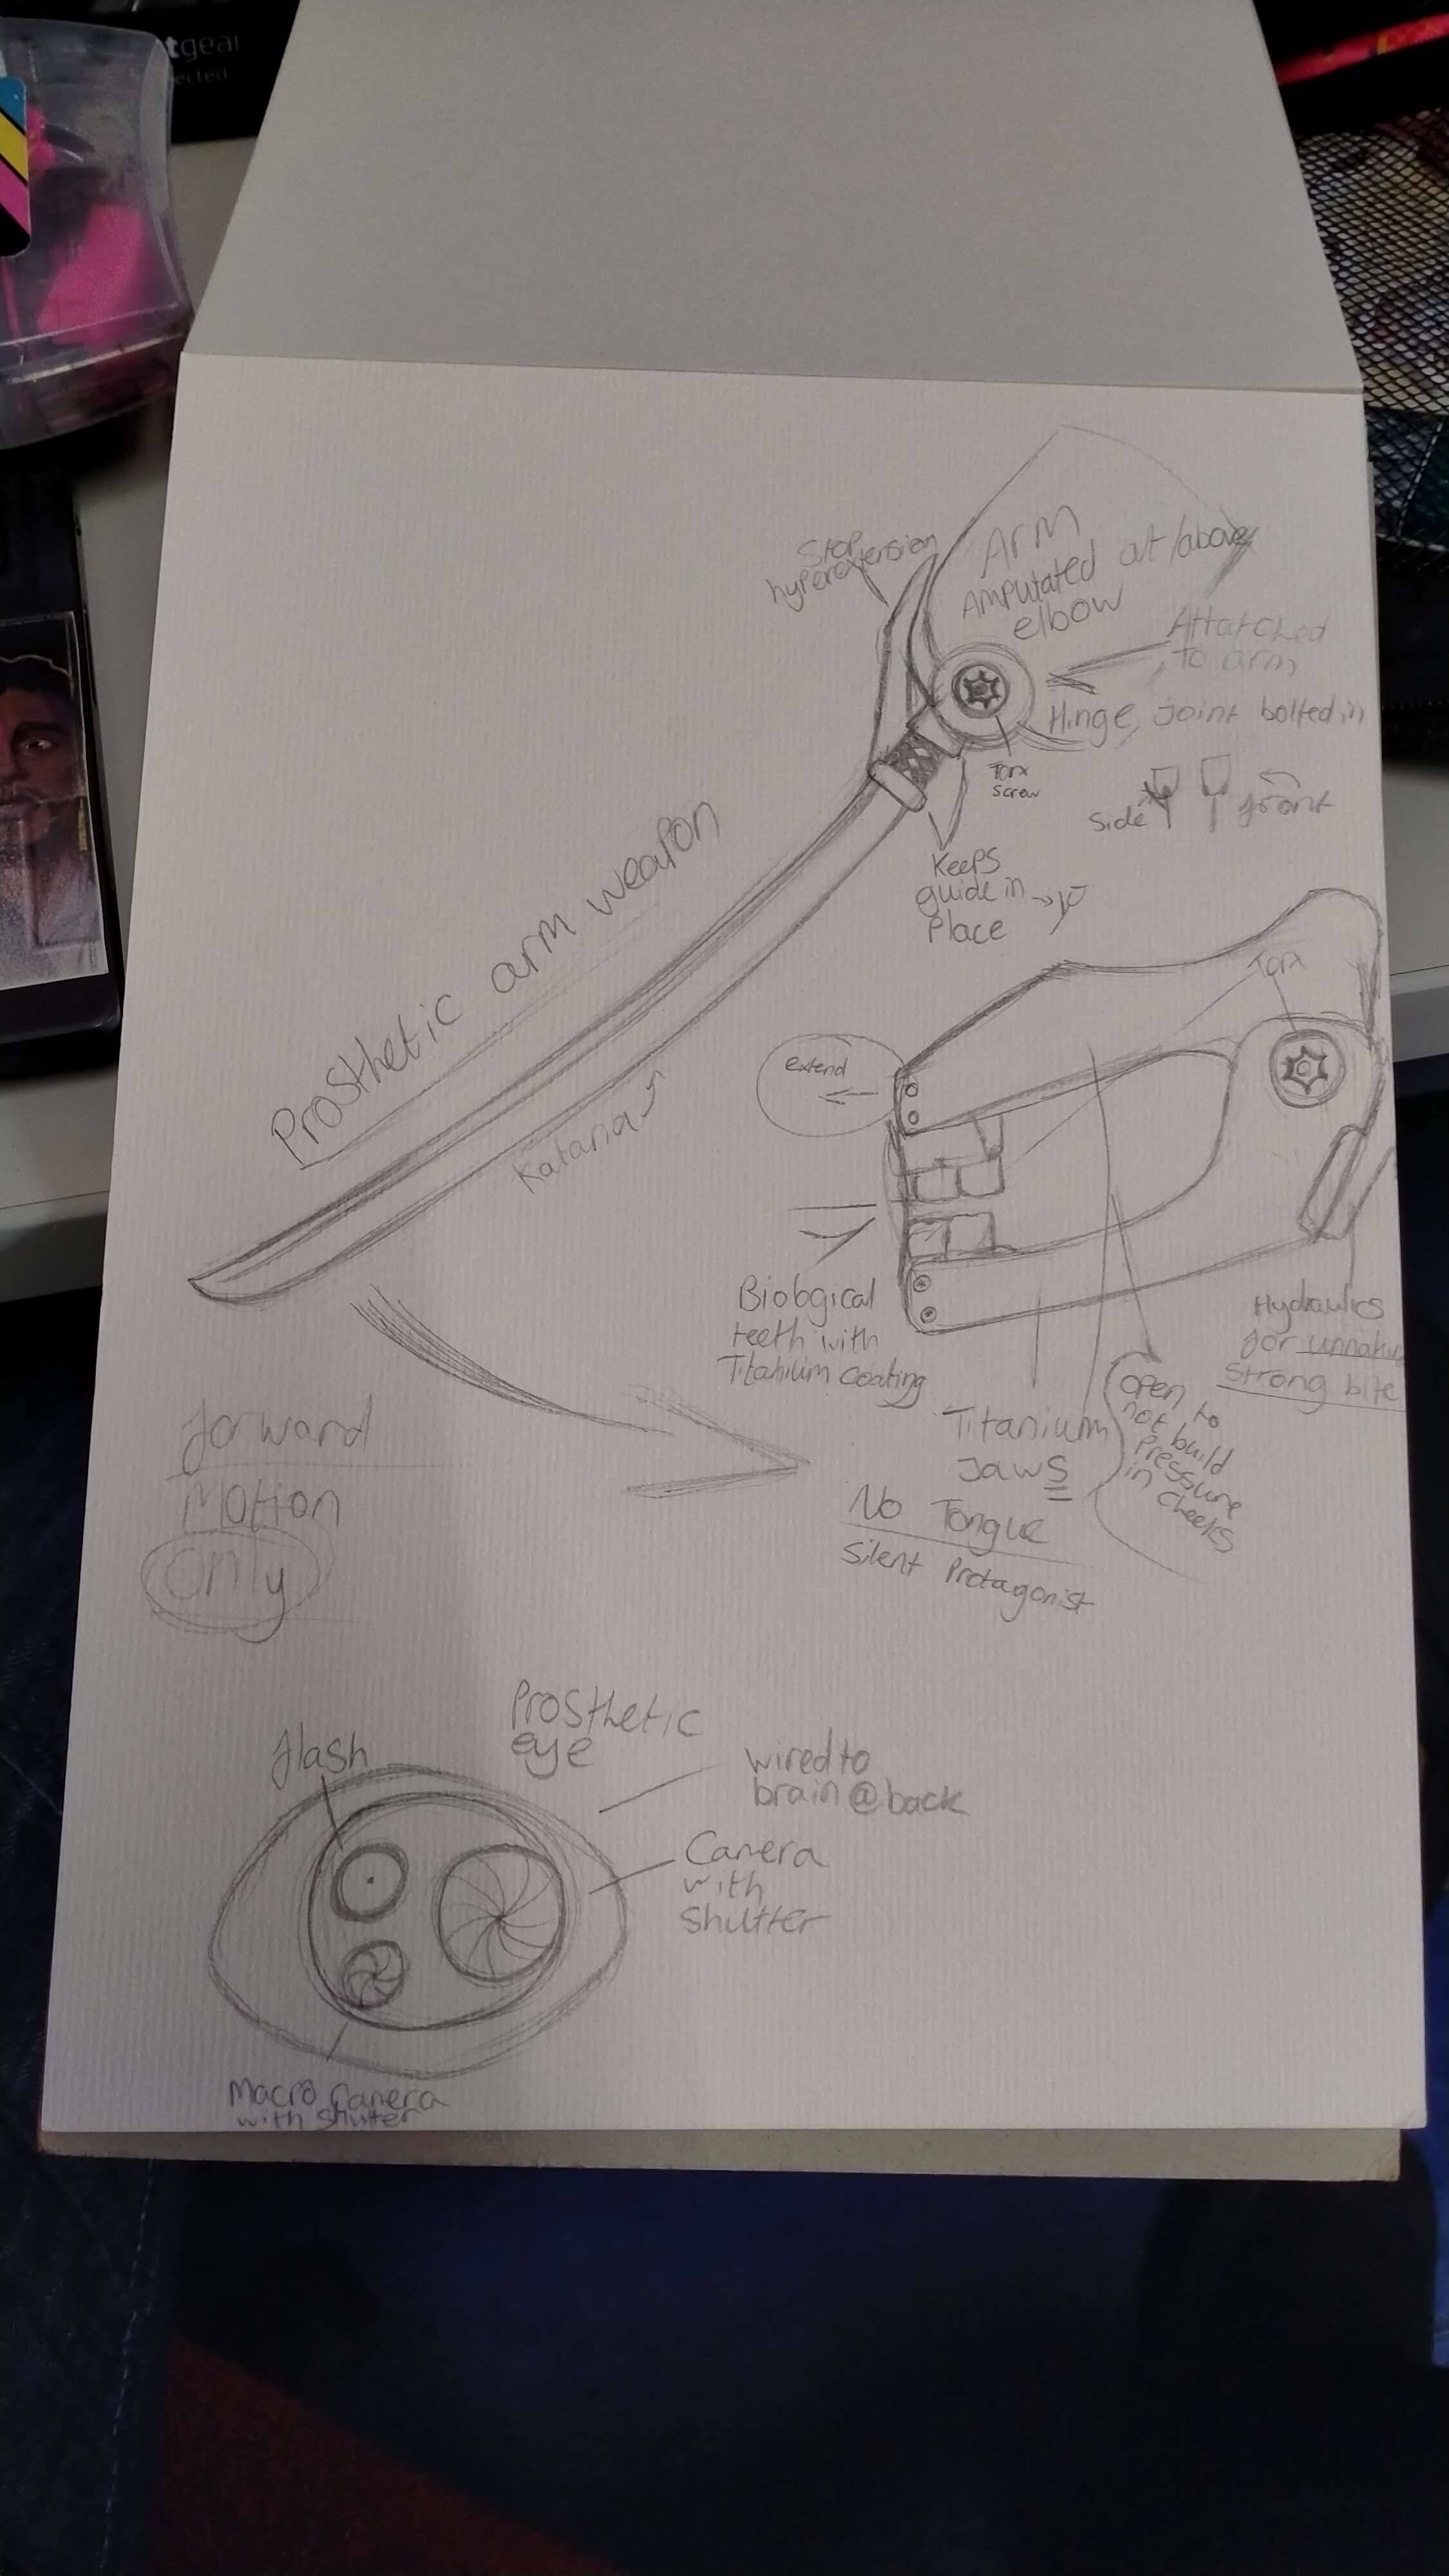 tgear
ected
Stop
hyperextension
Arm
Amputated at/above
elbow
Attatched
to arm
Hinge joint bolted in
Torx
screw
Side
front
Keeps
guide in
Place
Prosthetic arm weapon
Katana
Torx
extend
Biological
teeth with
Titanium coating
Hydraulics
for
strong bite
Titanium
Jaws
open to
not build
pressure
in cheeks
No Tongue
Silent Protagonist
forward
Motion
only
Prosthetic
eye
flash
wired to
brain @ back
Camera
with
Shutter
Macro Camera
with Shutter